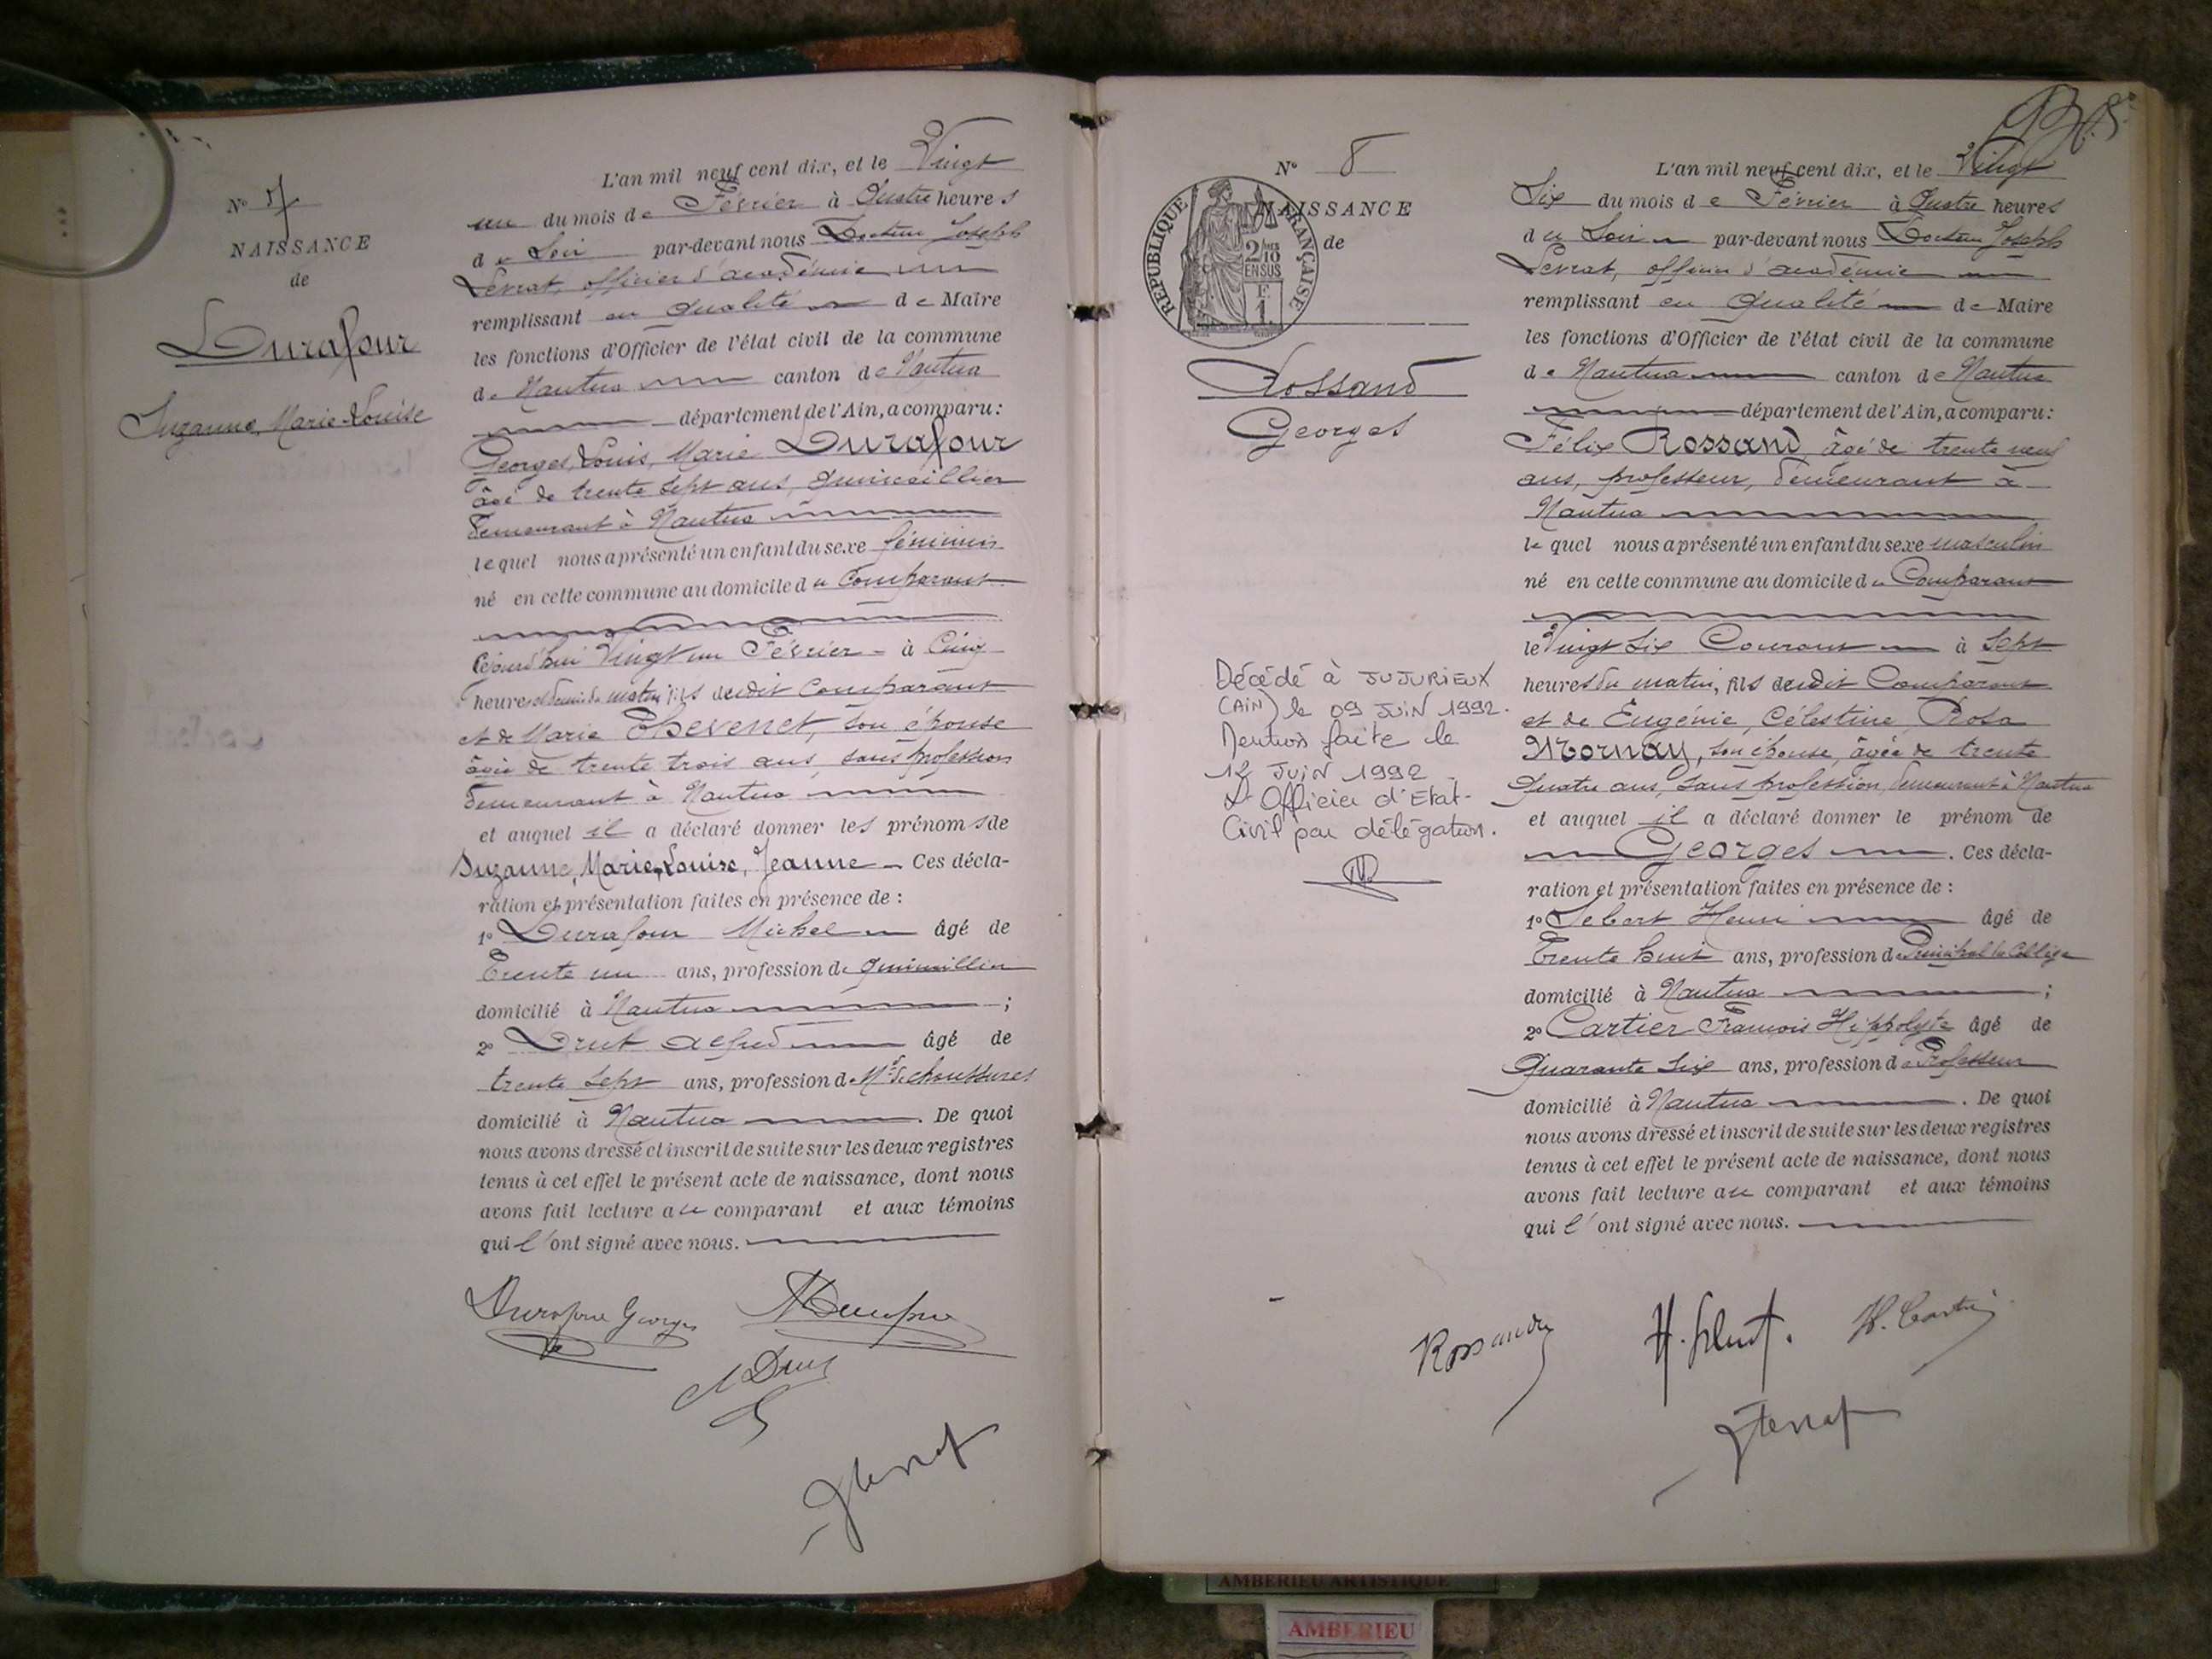 N° 7
NAISSANCE
de
Durafour
Suzanne, Marie-Louise
L'an mil neuf cent dix, et le Vingt
un du mois de Février à Quatre heures
du Soir par-devant nous Docteur Joseph
Levrat, officier d'académie
remplissant en qualité de Maire
les fonctions d'Officier de l'état civil de la commune
de Nantua canton de Nantua
département de l'Ain, a comparu:
Georges, Louis, Marie Durafour
âgé de trente sept ans, quincaillier
demeurant à Nantua
lequel nous a présenté un enfant du sexe féminin
né en cette commune au domicile du Comparant
Cejourd'hui Vingt un Février à Cinq
heures et demie du matin, fils dudit Comparant
et de Marie Thevenet, son épouse
âgée de trente trois ans, sans profession
demeurant à Nantua
et auquel il a déclaré donner les prénoms de
Suzanne, Marie-Louise, Jeanne Ces décla-
ration et présentation faites en présence de :
1° Durafour Michel âgé de
Trente un ans, profession de quincaillier
domicilié à Nantua ;
2° Drut Alfred âgé de
trente sept ans, profession de Md de chaussures
domicilié à Nantua . De quoi
nous avons dressé et inscrit de suite sur les deux registres
tenus à cet effet le présent acte de naissance, dont nous
avons fait lecture au comparant et aux témoins
qui l'ont signé avec nous.
Durafour Georges
A Drut
J Levrat
N° 8
NAISSANCE
de
RÉPUBLIQUE FRANÇAISE
2/10 EN SUS
Rossand
Georges
Décédé à JUJURIEUX
(AIN) le 09 JUIN 1992.
Mention faite le
12 JUIN 1992
L'Officier d'Etat-
Civil par délégation.
L'an mil neuf cent dix, et le Vingt
Six du mois de Février à Quatre heures
du Soir par-devant nous Docteur Joseph
Levrat, officier d'académie
remplissant en qualité de Maire
les fonctions d'Officier de l'état civil de la commune
de Nantua canton de Nantua
département de l'Ain, a comparu:
Félix Rossand, âgé de trente neuf
ans, professeur, demeurant à
Nantua
lequel nous a présenté un enfant du sexe masculin
né en cette commune au domicile du Comparant
le Vingt Six Courant à Sept
heures du matin, fils dudit Comparant
et de Eugénie, Célestine, Rosa
Mornay, son épouse, âgée de trente
quatre ans, sans profession, demeurant à Nantua
et auquel il a déclaré donner le prénom de
Georges . Ces décla-
ration et présentation faites en présence de :
1° Sebert Henri âgé de
Trente huit ans, profession de Principal de Collège
domicilié à Nantua ;
2° Cartier François Hippolyte âgé de
Quarante Six ans, profession de Professeur
domicilié à Nantua . De quoi
nous avons dressé et inscrit de suite sur les deux registres
tenus à cet effet le présent acte de naissance, dont nous
avons fait lecture au comparant et aux témoins
qui l'ont signé avec nous.
Rossand
H. Sebert.
H. Cartier
J Levrat
AMBERIEU ARTISTIQUE
AMBERIEU